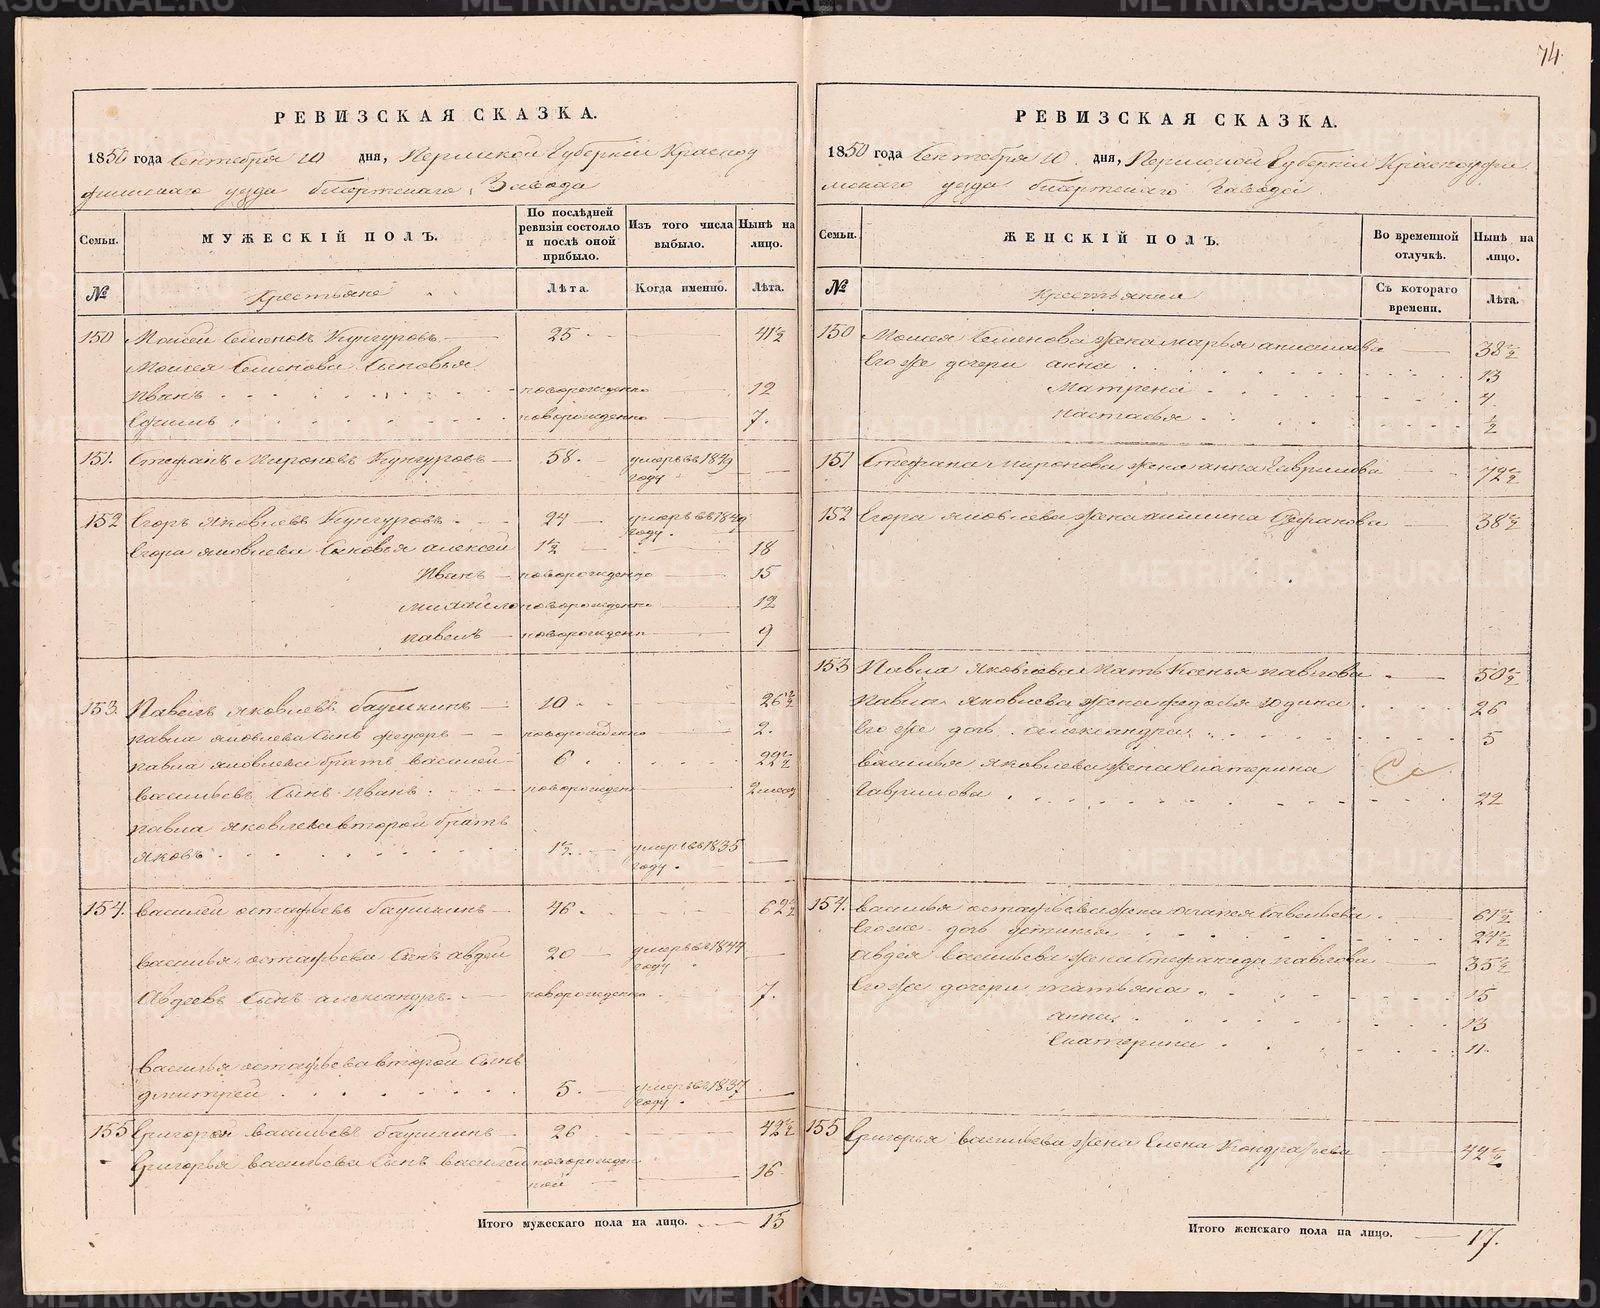 74
РЕВИЗСКАЯ СКАЗКА.
1850 года Сентября 10 дня, Пермской Губернiи Красноу
фимскаго уезда бисертскаго Завода
Семьи. МУЖЕСКIЙ ПОЛЪ. По послѣдней ревизiи состояло и послѣ оной прибыло. Изъ того числа выбыло. Нынѣ на лицо.
№ Крестьяне Лѣта. Когда именно. Лѣта.
150 Моисей Семеновъ Кунгуровъ 25 41 1/2
Моисея Семенова Сыновья
Иванъ новорожденно 12
Ефимъ новорожденно 7.
151. Стефанъ Мироновъ Кунгуровъ 58. умеръ въ 1849
году
152 Егоръ Яковлевъ Кунгуровъ 24 умеръ въ 1849
году.
Егора яковлева Сыновья алексей 1 1/2 18
Иванъ новорожденно 15
михайло новорожденно 12
павелъ новорожден 9
153. Павелъ Яковлевъ баушкинъ 10 26 1/2
павла яковлева Сынъ федоръ новорожденно 2.
павла яковлева братъ василей 6 22 1/2
васильевъ Сынъ Иванъ новорожден 2 месец
павла яковлева второй братъ
яковъ 1 1/2 умеръ въ 1835
году.
154. василей остафьевъ баушкинъ 46. 62 1/2
василья остафьева Сынъ авдей 20 умеръ въ 1844
году
Авдеевъ Сынъ александръ новорожденно 7.
василья остафьева второй Сынъ
дмитрей 5. умеръ въ 1837
году.
155 Григорей васильевъ баушкинъ 26 42 1/2
Григорья васильева Сынъ василей новорожден
ной 16
Итого мужескаго пола на лицо. 15
РЕВИЗСКАЯ СКАЗКА.
1850 года Сентября 10 дня, Пермской Губернiи Красноуфи
мскаго уезда бисертскаго Завода
Семьи. ЖЕНСКIЙ ПОЛЪ. Во временной отлучкѣ. Нынѣ на лицо.
№ Крестьянки Съ котораго времени. Лѣта.
150 Моисея Семенова жена марья анисимова 38 1/2
Его же дочери анна 13
Матрена 4
настасья 1/2
151 Стефана миронова жена анна Гаврилова 72 1/2
152 Егора яковлева жена Стефанова 38 1/2
153 Павла Яковлева Мать Ксенья павлова 50 1/2
павла яковлева жена федосья 26
Его же дочь александра 5
василья яковлева жена Екатерина
Гаврилова 22
154. василья остафьева жена савельева 61 1/2
Его же дочь устинья 24 1/2
авдея васильева жена Стефанида павлова 35 1/2
Его же дочери татьяна 15
анна 13
Екатерина 11.
155 Григорья васильева жена Елена Кондратьева 42 1/2
Итого женскаго пола на лицо. 17.
METRIKI.GASO-URAL.RU